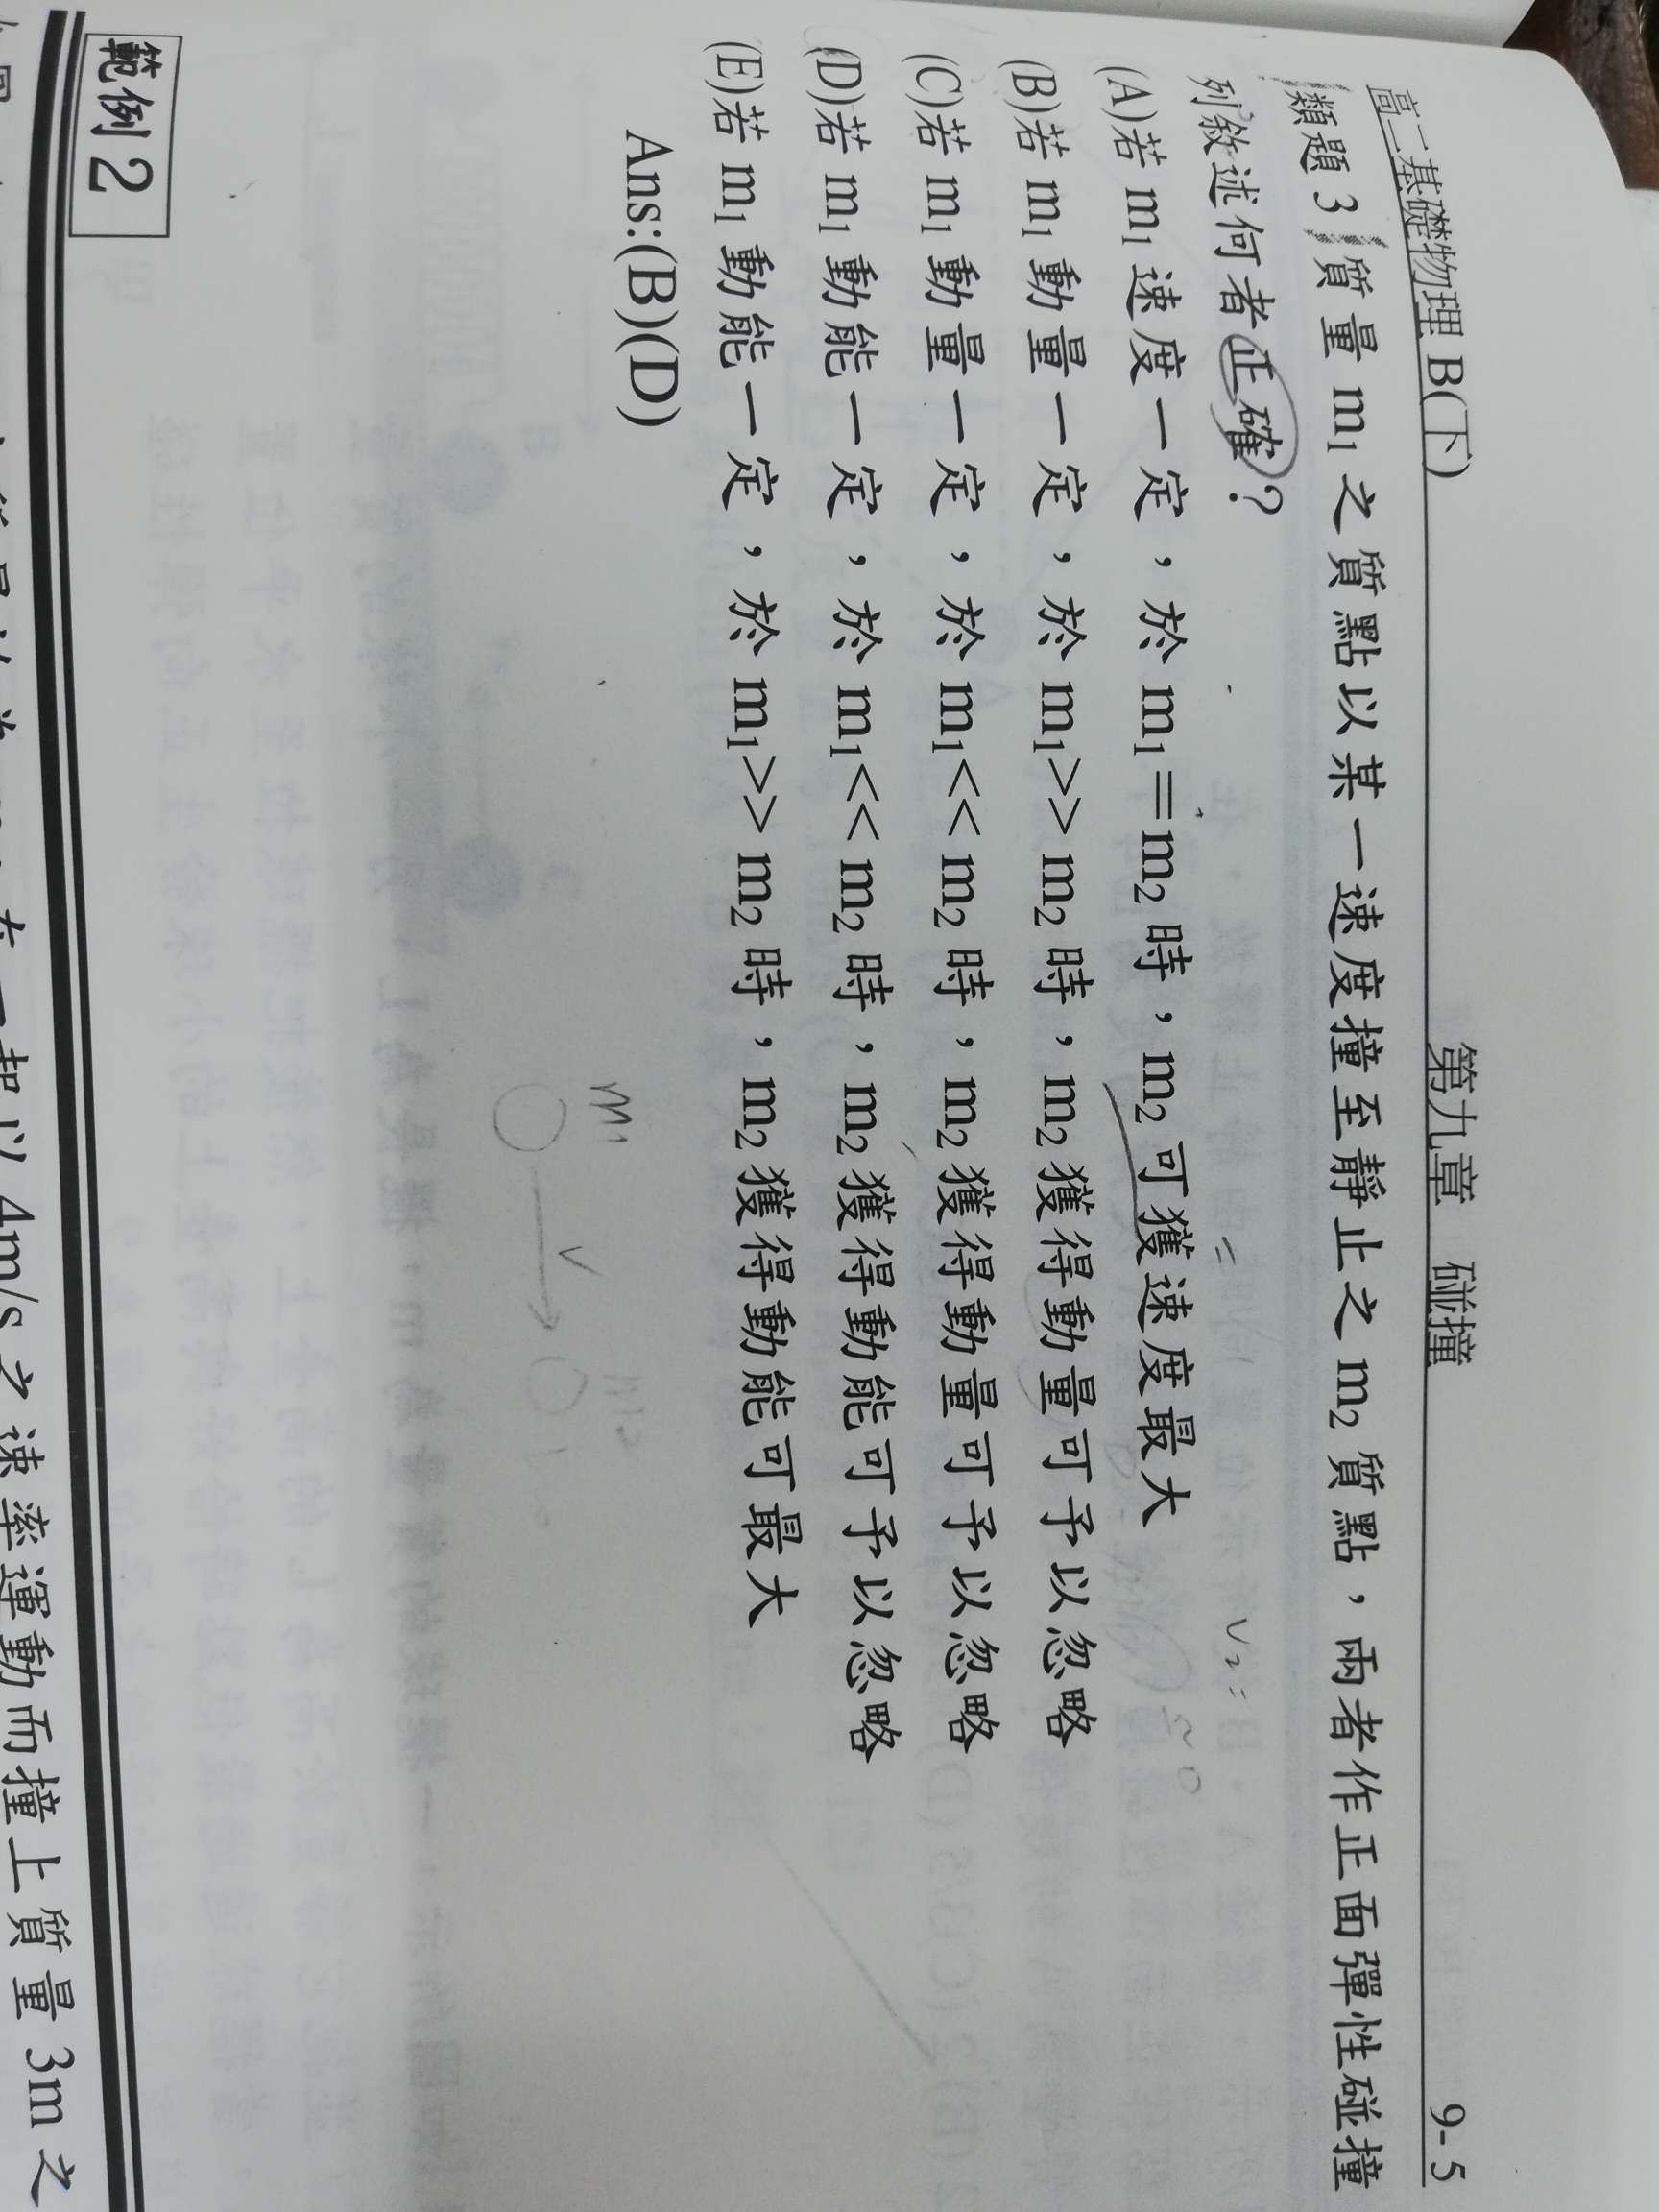 高二基礎物理 B(下) 第九章 碰撞 9-5
類題 3 質量 m₁ 之質點以某一速度撞至靜止之 m₂ 質點，兩者作正面彈性碰撞
列敘述何者正確？
(A)若 m₁ 速度一定，於 m₁＝m₂ 時，m₂ 可獲速度最大
(B)若 m₁ 動量一定，於 m₁>> m₂ 時，m₂ 獲得動量可予以忽略
(C)若 m₁ 動量一定，於 m₁<< m₂ 時，m₂ 獲得動量可予以忽略
(D)若 m₁ 動能一定，於 m₁<< m₂ 時，m₂ 獲得動能可予以忽略
(E)若 m₁ 動能一定，於 m₁>> m₂ 時，m₂ 獲得動能可最大
Ans:(B)(D)
V₂=
≈0
m₁ m₂
V
範例 2
在一起以 4m/s 之速率運動而撞上質量 3m 之